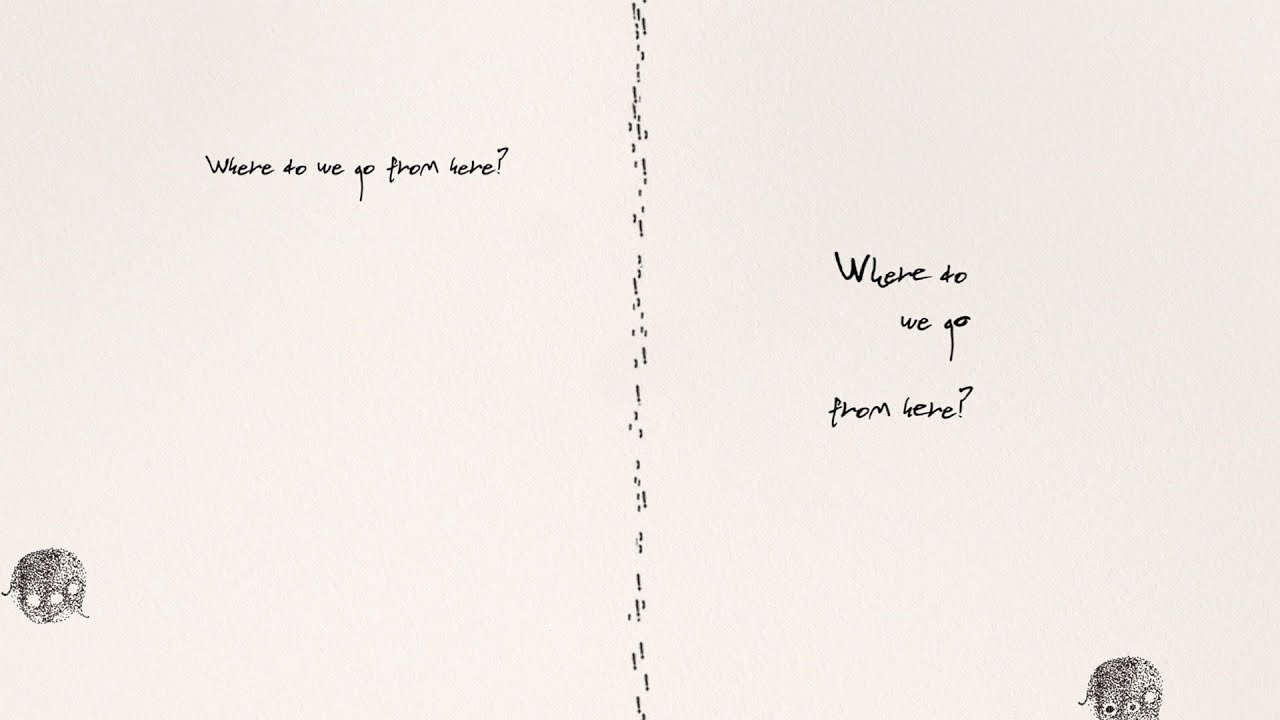 Where do we go from here?
Where do
we go
from here?